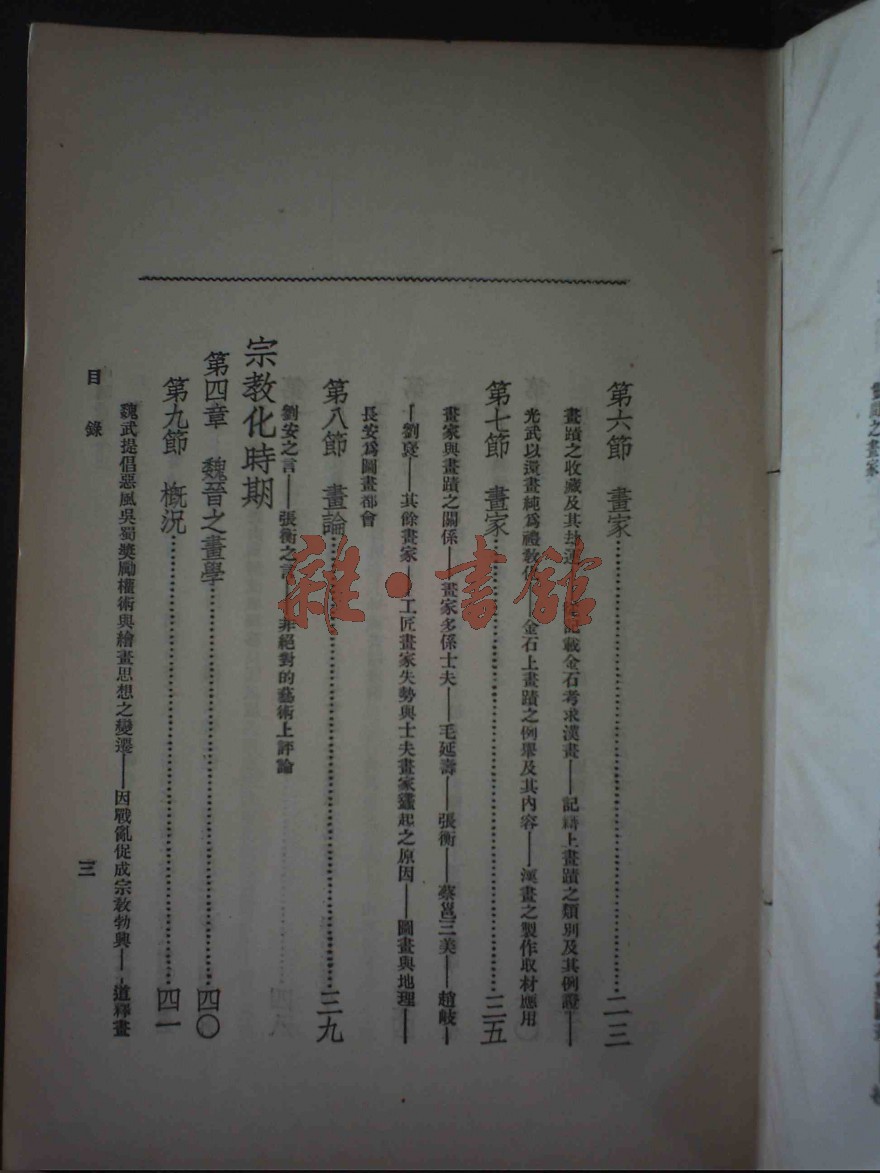 第六節 畫家……二三
畫蹟之收藏及其劫 記載金石考求漢畫——記籍上畫蹟之類別及其例證——
光武以還畫純爲禮教化——金石上畫蹟之例舉及其內容——漢畫之製作取材應用
第七節 畫家……三五
畫家與畫蹟之關係——畫家多係士夫——毛延壽——張衡——蔡邕三美——趙岐—
—劉褒——其餘畫家——工匠畫家失勢與士夫畫家叢起之原因——圖畫與地理——
長安爲圖畫都會
第八節 畫論……三九
劉安之言——張衡之言——非絕對的藝術上評論
宗教化時期
第四章 魏晉之畫學……四〇
第九節 概況……四一
魏武提倡惡風吳蜀獎勵權術與繪畫思想之變遷——因戰亂促成宗教勃興——道釋畫
目錄
三
雜·書館
之畫家